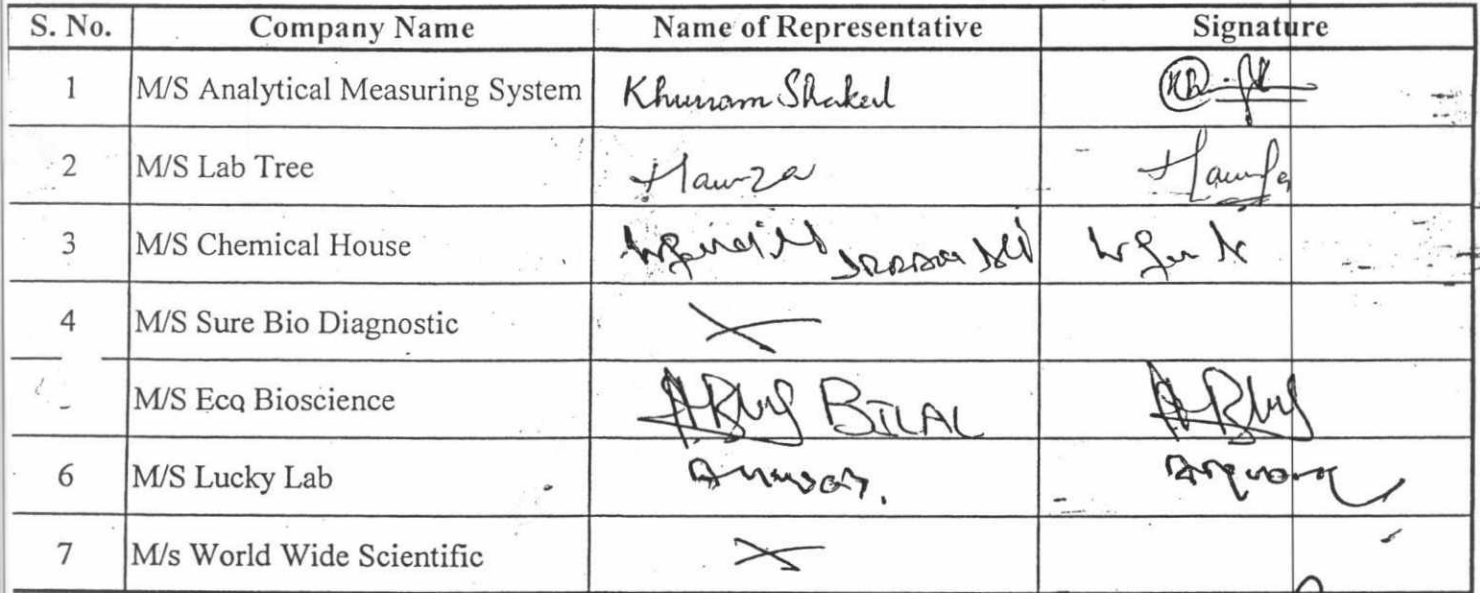 S. No. Company Name Name of Representative Signature
1 M/S Analytical Measuring System Khurram Shakeel
2 M/S Lab Tree Hamza Hamza
3 M/S Chemical House
4 M/S Sure Bio Diagnostic
M/S Eco Bioscience BILAL
6 M/S Lucky Lab
7 M/s World Wide Scientific